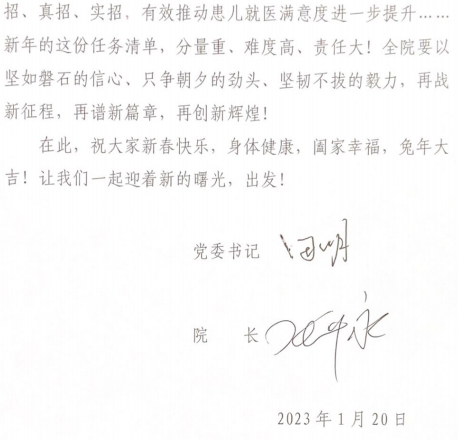 招、真招、实招，有效推动患儿就医满意度进一步提升……
新年的这份任务清单，分量重、难度高、责任大！全院要以
坚如磐石的信心、只争朝夕的劲头、坚韧不拔的毅力，再战
新征程，再谱新篇章，再创新辉煌！
在此，祝大家新春快乐，身体健康，阖家幸福，兔年大
吉！让我们一起迎着新的曙光，出发！
党委书记
院 长
2023年1月20日